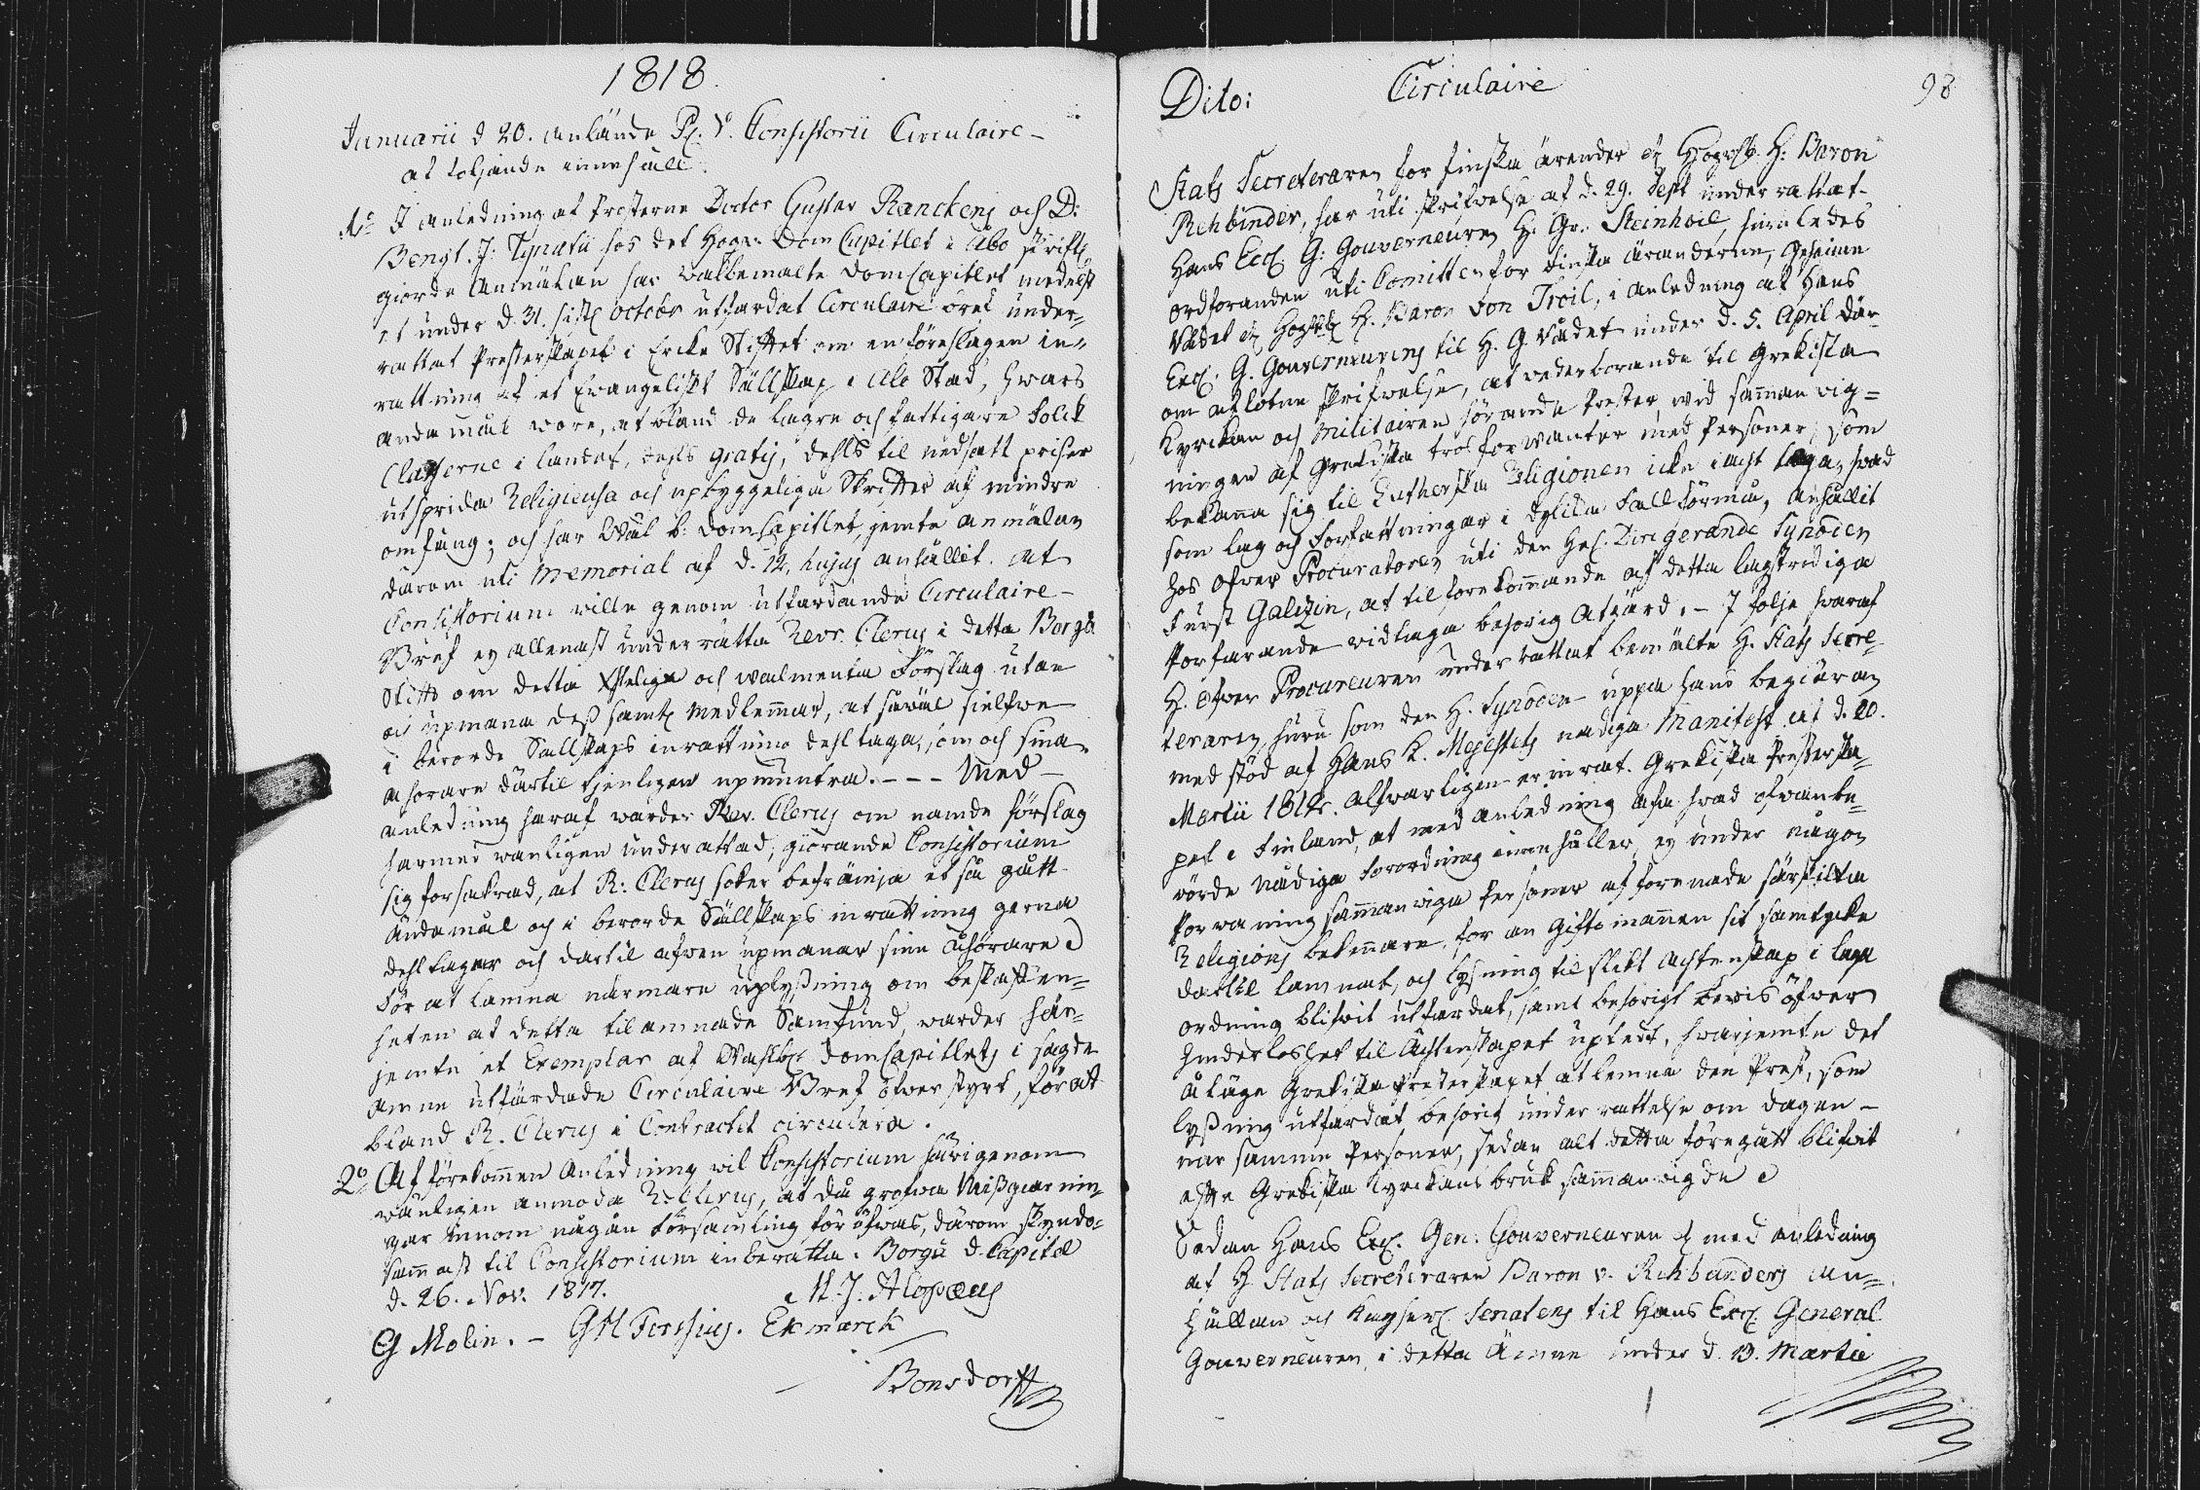 1818.
Januarii d 20. anlände Pl. V. Consistorii Circulaire
af följande innehåll.
1o I anledning af Presterne Doctor Gustav Ranckens och D:
Bengt. J: Ignatii hos det Högv. DomCapitlet i Åbo skriftl.
giorde anmälan har wälbemälte DomCapitlet medelst
et under d. 31. sistl. Octobr utfärdat Circulaire bref under-
rättat Presterskapet i Ercke Stiftet om en föreslagen in-
rättning af et Evangeliskt Sällskap i Åbo Stad, hwars
ändamål wore, at bland de lägre och fattigare Folck
Classerne i landet, dels gratis, dehls til nedsatt priser
utsprida Religieusa och upbyggeliga Skrifter af mindre
omfång; och har Wäl b: DomCapitlet, jemte anmälan
därom uti Memorial af d. 12. hujus anhållit. at
Consistorium wille genom utfärdande Circulaire-
Bref ej allenast underrätta Revr. Clerus i detta Borgå
Stift om detta Xstelige och wälmenta Förslag utan
ock upmana dess samtl. medlemmar, at såwäl sielfwe
i berörde Sällskaps inrättning dehltaga, som ock sina
åhörare därtil tjenligen upmuntra. - - - Med
anledning häraf warder Rev. Clerus om nämde förslag
härmed wänligen underättad, giörande Consistorium
sig försäkrad, at R: Clerus söker befrämja et så godt
ändamål och i berörde Sällskaps inrättning gerna
dehltager och därtil äfwen upmanar sine åhörare
För at lämna närmare uplysning om beskaffen-
heten af detta tilämnade Samfund, warder här-
jemte et Exemplar af Wählbl. DomCapitlets i sagde
ämne utfärdade Circulaire Bref öfwerstyrt, för at
bland R. Clerus i Contractet circulera.
2o Af förekommen Anledning wil Consistorium härigenom
wänligen anmoda R. Clerus, at då grofwa Missgiärnin-
gar innom någon Församling för öfwas, därom skynd-
sammast til Consistorium inberätta. Borgå d. Capitel
d. 26. Nov. 1817. M. J. Alopæus
G Molin. - GM Forsius. Ekmarck
Bonsdorff
Dito: Circulaire 98
Stats Secreteraren för finska ärender Högvälb. H: Baron
Rehbinder, har uti skrifwelse af d. 29. Sept underrättat
Hans Excl. G: Gouverneuren H. Gr. Steinheil, huruledes
ordföranden uti Comitten för finska ärenderne, Geheime
Rådet Högwälb. H. Baron von Troil, i anledning af Hans
Excl. G. Gouverneurens til H. G Rådet under d. 5. April där-
om aflåtne skrifwelse, at wederbörande til Grekiska
Kyrckan och Militairen hörande Prester wid samman wig-
ningen af Grekiska trosförwanter med Personer, som
bekänna sig til Lutherska Religionen icke i akt taga, hwad
som lag och Författningar i dylika Fall förmå, anhållit
hos Öfwer Procuratoren uti den Hel. Dirigerande Synoden
Furst Galizin, at til förekommande af detta lagstridiga
förfarande widtaga behörig åtgärd. - I följe hwaraf
H. Öfwer Procureuren underrättat bemälte H. Stats Secre-
teraren, huru som den H. Synoden uppå hans begiäran
med stöd af Hans K. Majestets nådiga Manifest af d. 20.
Martii 1812. alfwarligen erinrat Grekiska Presterska-
pet i Finland, at med anledning af hwad ofwanbe-
rörde nådiga förordning innehåller, ej under någon
förwäning sammanwiga Personer af förenade särskilta
Religions bekännare, för än Giftomannen sit samtycke
därtil lämnat, och lysning til slikt äktenskap i laga
ordning blifwit utfärdat, samt behörigt bewis öfwer
hinderlöshet til Äktenskapet uptedt, hwarjemte det
ålåge Grekiska Presterskapet at lemna den Prest, som
lysning utfärdat behörig underrättelse om dagen
när samma Personer, sedan alt detta föregått blifwit
efter Grekiska kyrckans bruk sammanwigde
Sedan Hans Excl. Gen: Gouverneuren med anledning
af H Stats Secreteraren Baron v. Rehbinders an-
hållan och Kejserl. Senatens til Hans Excl. General
Gouverneuren i detta Ämne under d. 19. Martii